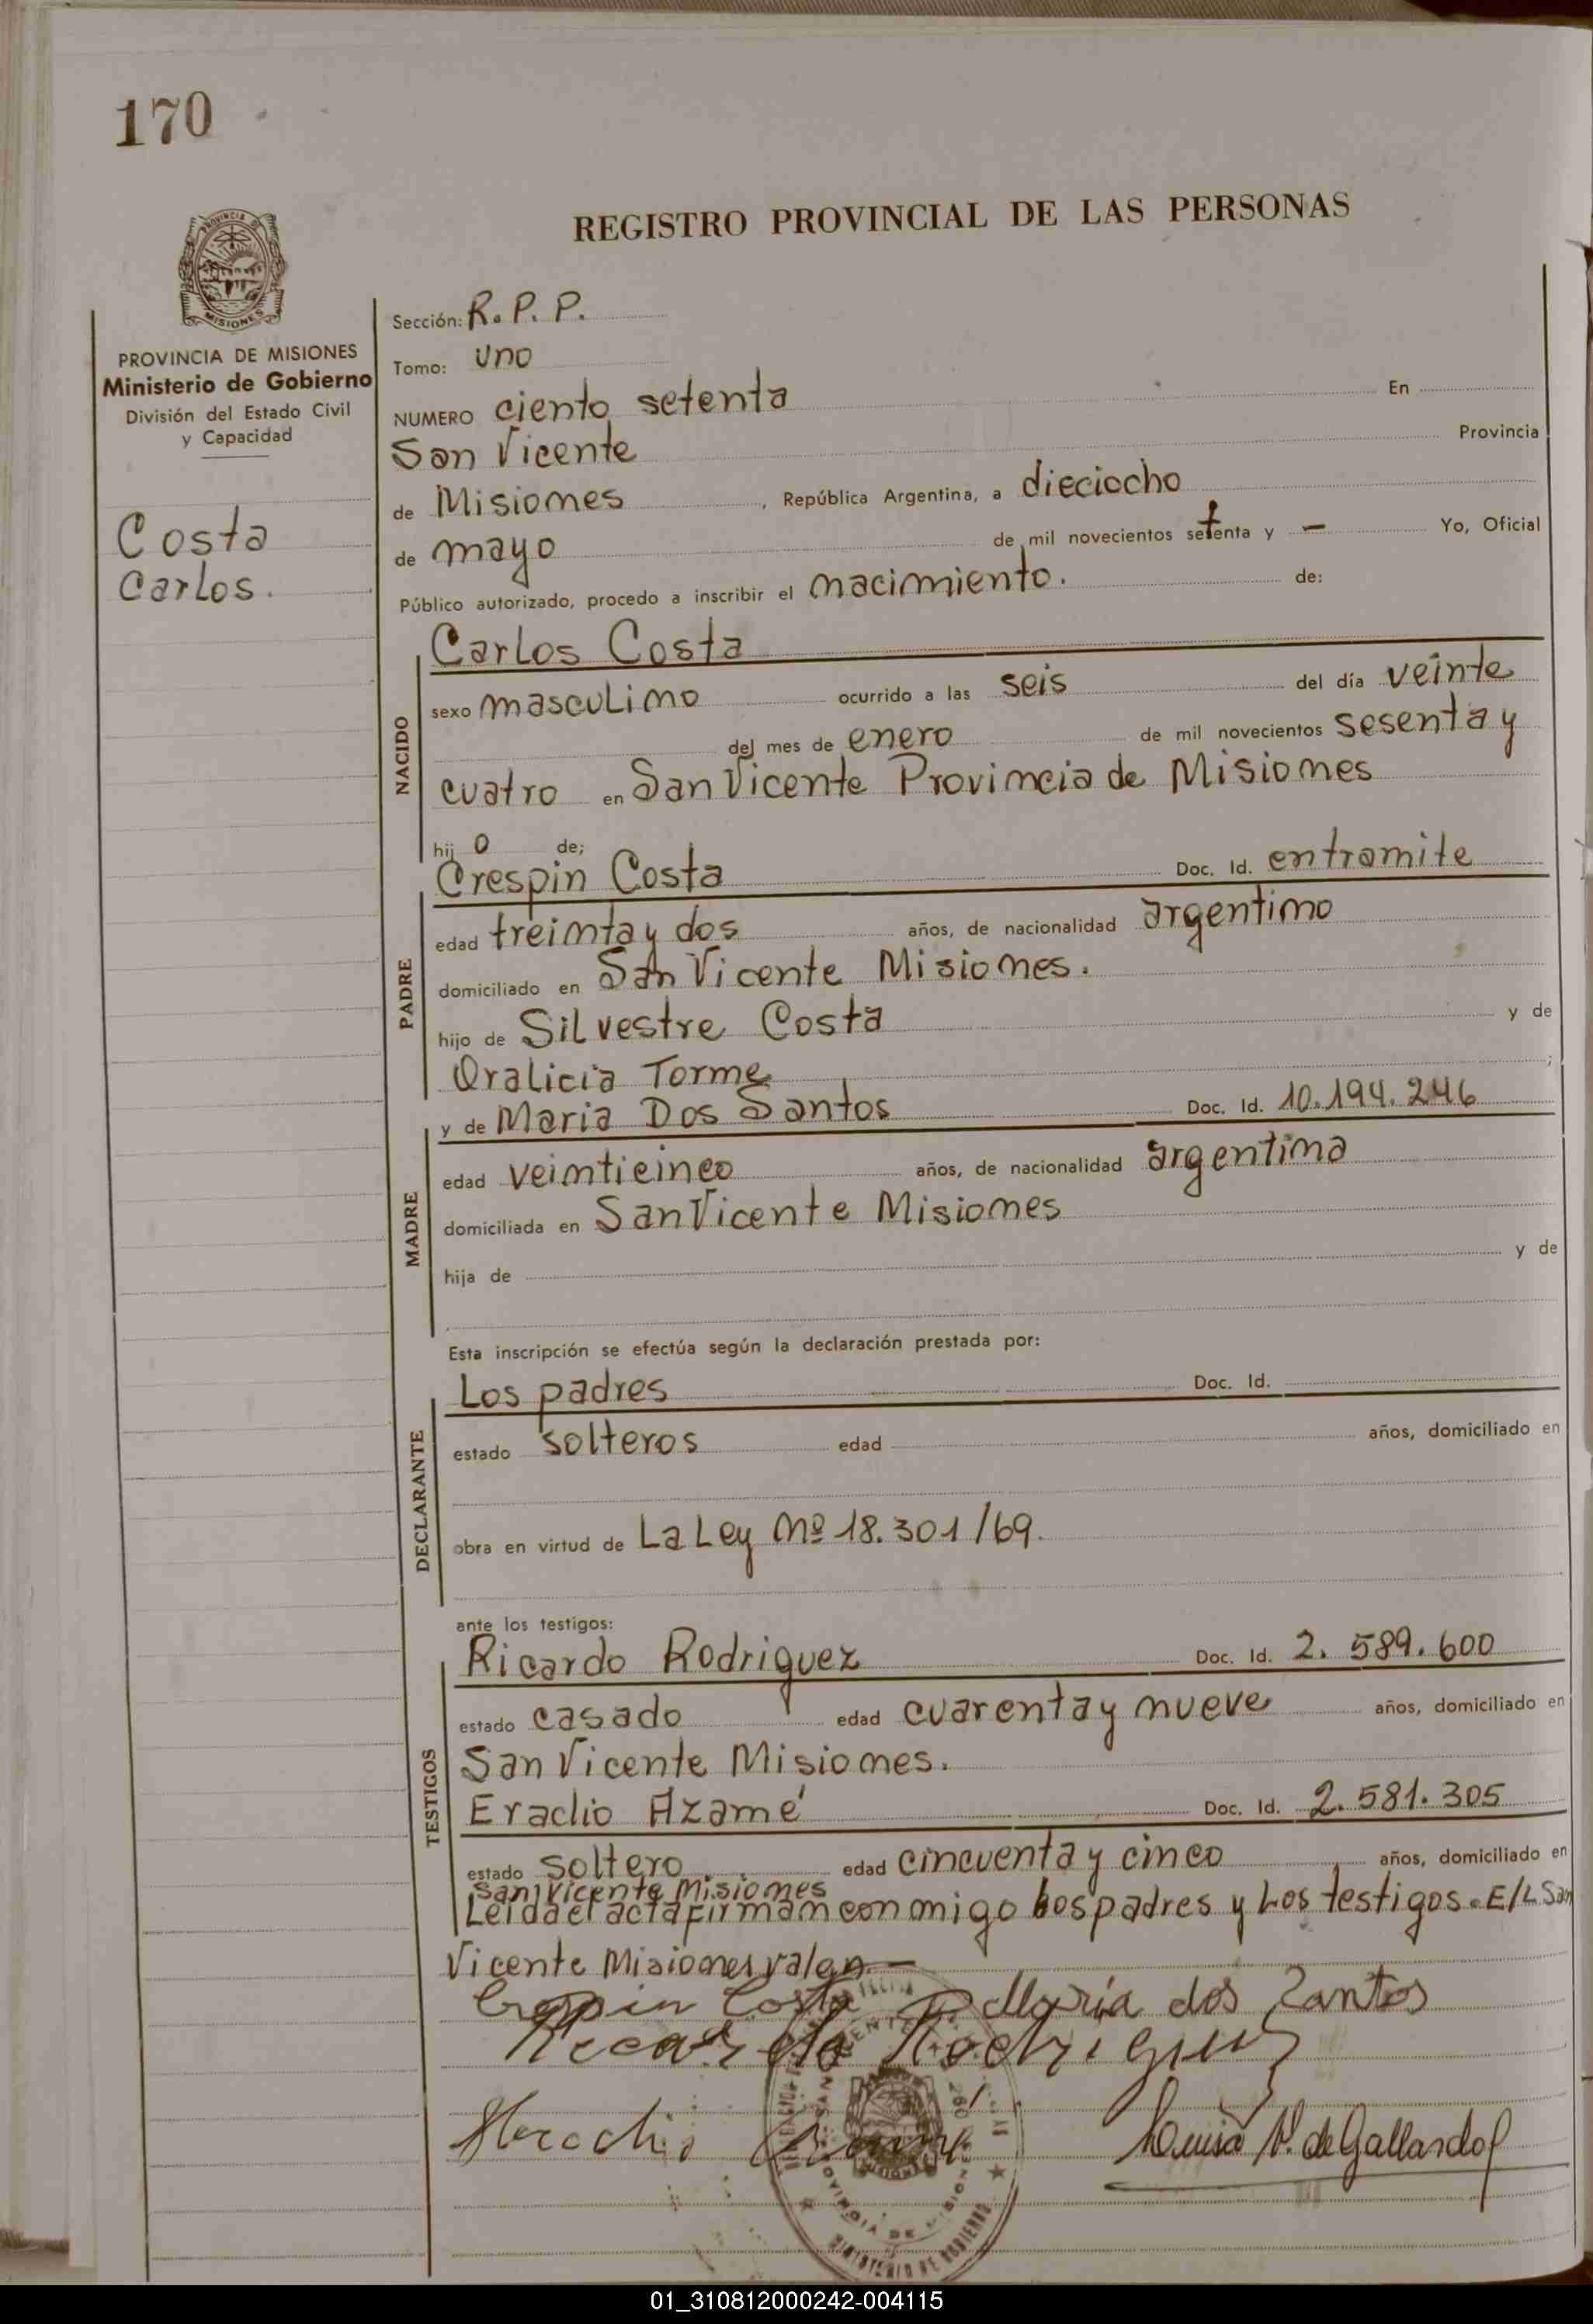 170
REGISTRO PROVINCIAL DE LAS PERSONAS
PROVINCIA DE MISIONES
Ministerio de Gobierno
División del Estado Civil
y Capacidad
Costa
Carlos.
Sección: R. P. P.
Tomo: uno
NUMERO ciento setenta En
San Vicente Provincia
de Misiones, República Argentina, a dieciocho
de mayo de mil novecientos setenta y — Yo, Oficial
Público autorizado, procedo a inscribir el nacimiento. de:
NACIDO
Carlos Costa
sexo masculino ocurrido a las seis del día veinte
del mes de enero de mil novecientos sesenta y
cuatro en San Vicente Provincia de Misiones
hijo de;
PADRE
Crespin Costa Doc. Id. entramite
edad treinta y dos años, de nacionalidad argentino
domiciliado en San Vicente Misiones.
hijo de Silvestre Costa y de
Oralicia Torme;
MADRE
y de Maria Dos Santos Doc. Id. 10.194.246
edad veinticinco años, de nacionalidad argentina
domiciliada en San Vicente Misiones
hija de y de
Esta inscripción se efectúa según la declaración prestada por:
DECLARANTE
Los padres Doc. Id.
estado solteros edad años, domiciliado en
obra en virtud de La Ley Nº 18.301/69.
ante los testigos:
TESTIGOS
Ricardo Rodriguez Doc. Id. 2.589.600
estado casado edad cuarenta y nueve años, domiciliado en
San Vicente Misiones.
Eraclio Azamé Doc. Id. 2.581.305
estado soltero edad cincuenta y cinco años, domiciliado en
San Vicente Misiones
Leida el acta firman conmigo los padres y los testigos. E/L San
Vicente Misiones valen.—
Crespin Costa María dos Santos
Ricardo Rodriguez
Luisa V. de Gallardo
MINISTERIO DE GOBIERNO
01_310812000242-004115